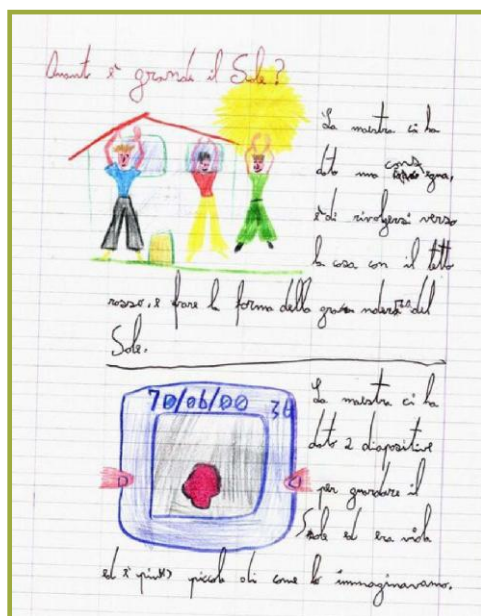 Quanto è grande il Sole?
La maestra ci ha
dato una consegna,
è di rivolgersi verso
la casa con il tetto
rosso, e fare la forma della grandezza del
Sole.
70/06/00 36
La maestra ci ha
dato 2 diapositive
per guardare il
Sole ed era viola
ed è più piccolo di come lo immaginavamo.